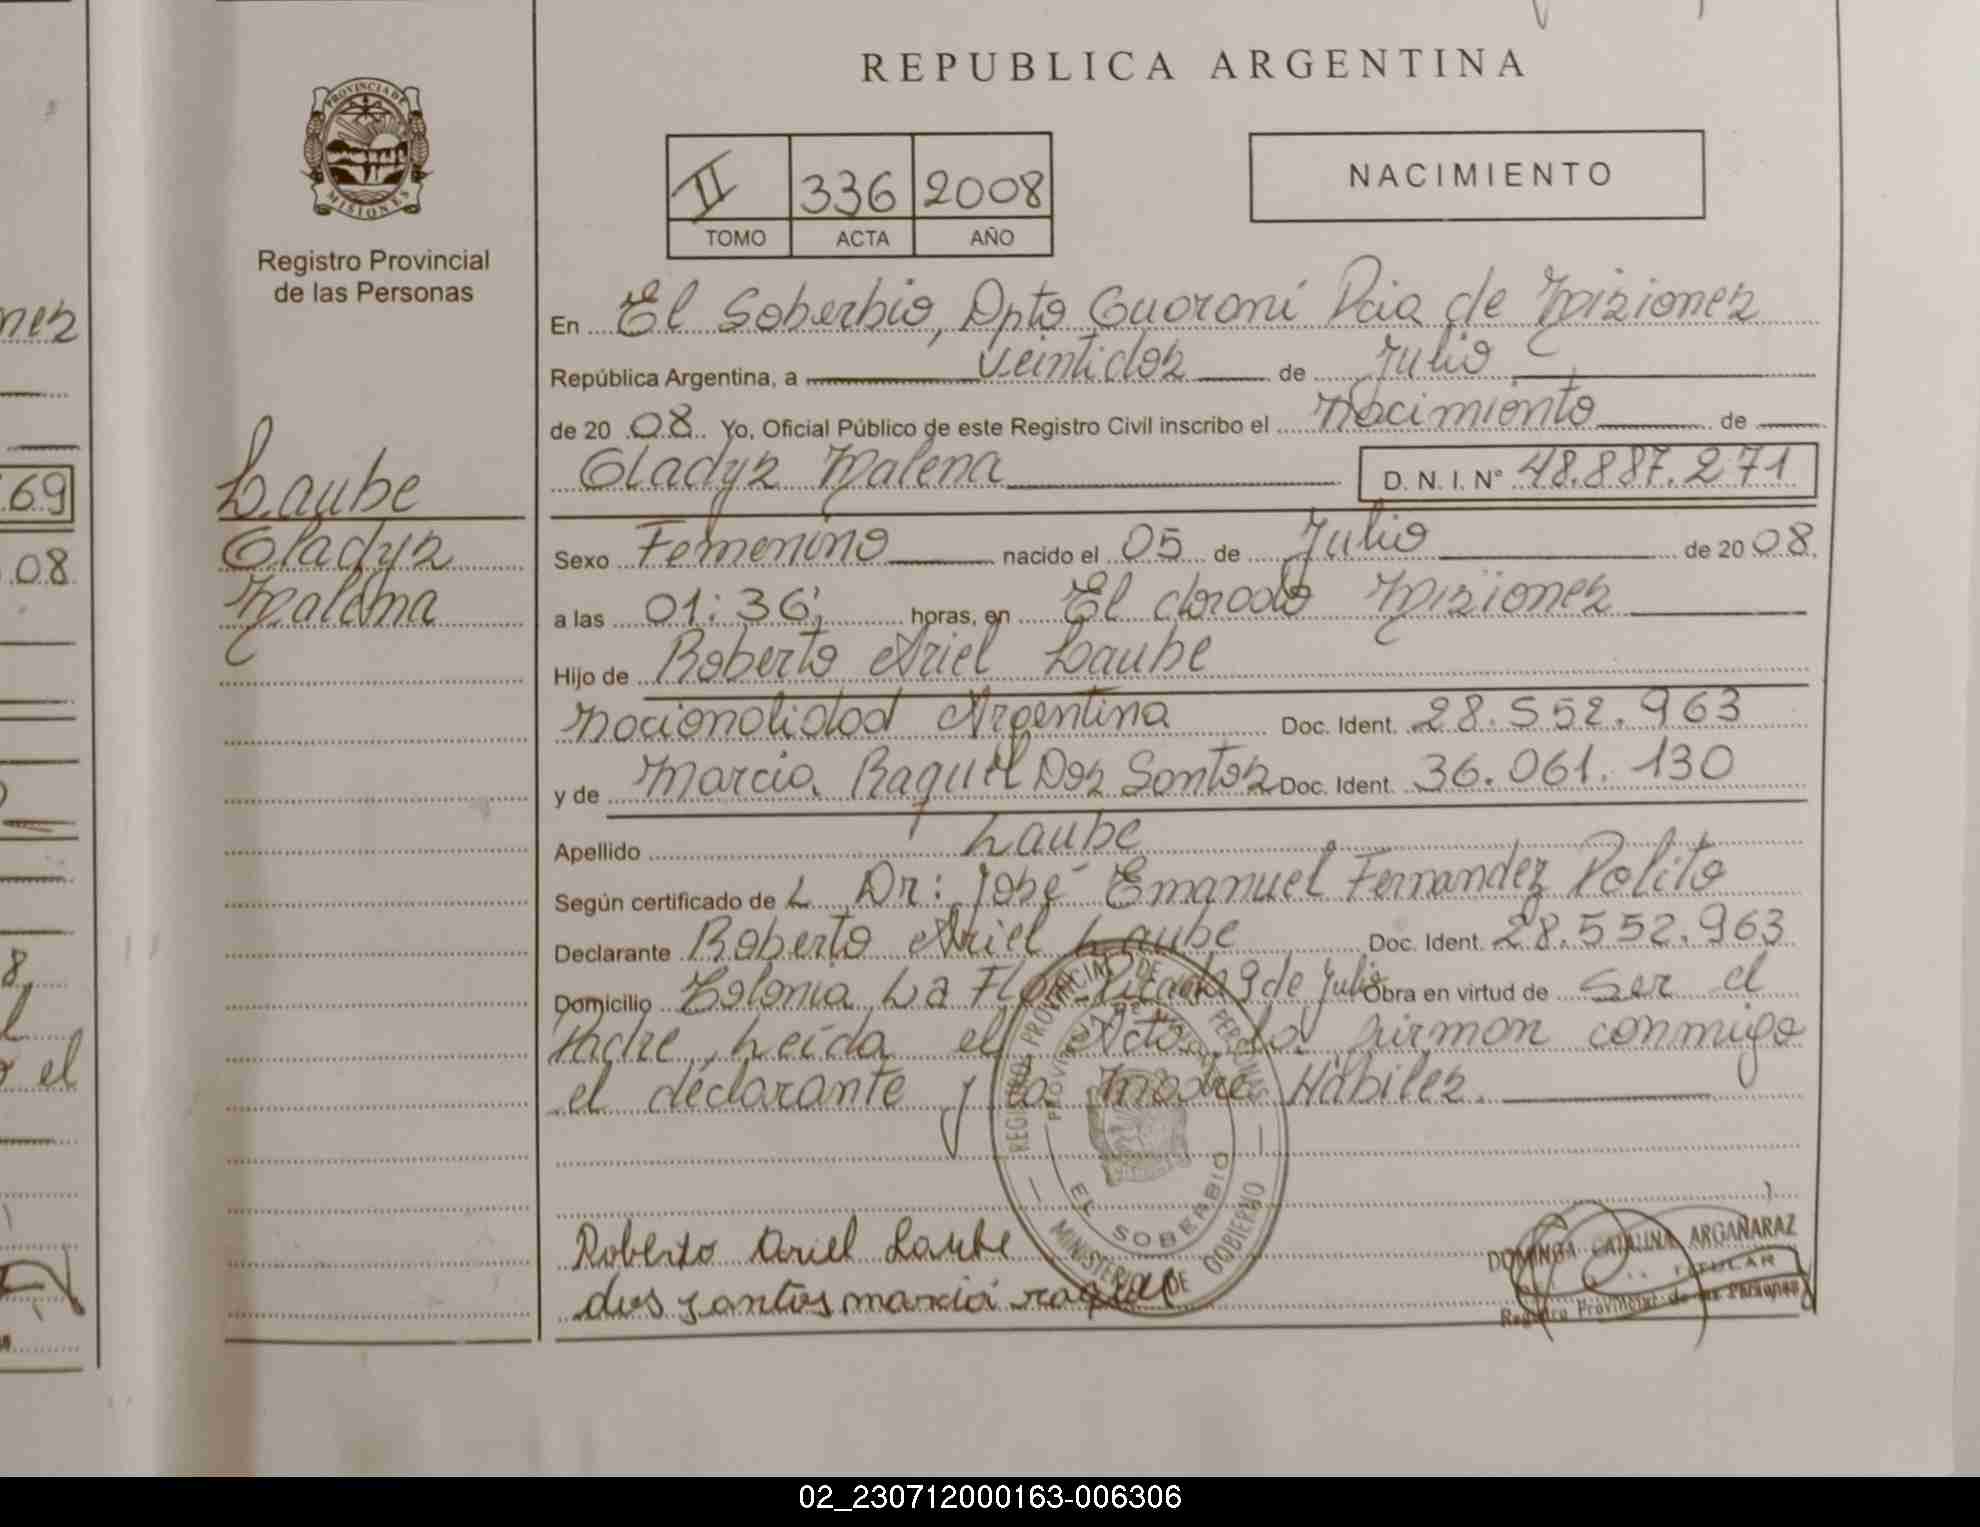 REPUBLICA ARGENTINA
PROVINCIA DE
MISIONES
Registro Provincial
de las Personas
II 336 2008
TOMO ACTA AÑO
NACIMIENTO
En El Soberbio, Dpto Guaraní Pcia de Misiones
República Argentina, a veintidos de Julio
de 20 08 Yo, Oficial Público de este Registro Civil inscribo el Nacimiento de
Gladys Malena D. N. I. Nº 48.887.271
Laube
Gladys
Malena
Sexo Femenino nacido el 05 de Julio de 20 08.
a las 01:36, horas, en El dorado Misiones
Hijo de Roberto Ariel Laube
Nacionalidad Argentina Doc. Ident. 28.552.963
y de Marcia Raquel Dos Santos Doc. Ident. 36.061.130
Apellido Laube
Según certificado de L Dr: José Emanuel Fernandez Polito
Declarante Roberto Ariel Laube Doc. Ident. 28.552.963
Domicilio Colonia La Flor Picada 9 de Julio Obra en virtud de ser el
Padre, Leída el Acta, la firman conmigo
el declarante y la madre Hábiles.
REGISTRO PROVINCIAL DE LAS PERSONAS
PROVINCIA DE MISIONES
EL SOBERBIO
MINISTERIO DE GOBIERNO
Roberto Ariel Laube
dos santos marcia raquel
DOMINGA CATALINA ARGAÑARAZ
TITULAR
Registro Provincial de las Personas
nes
.69
.08
8,
el
02_230712000163-006306